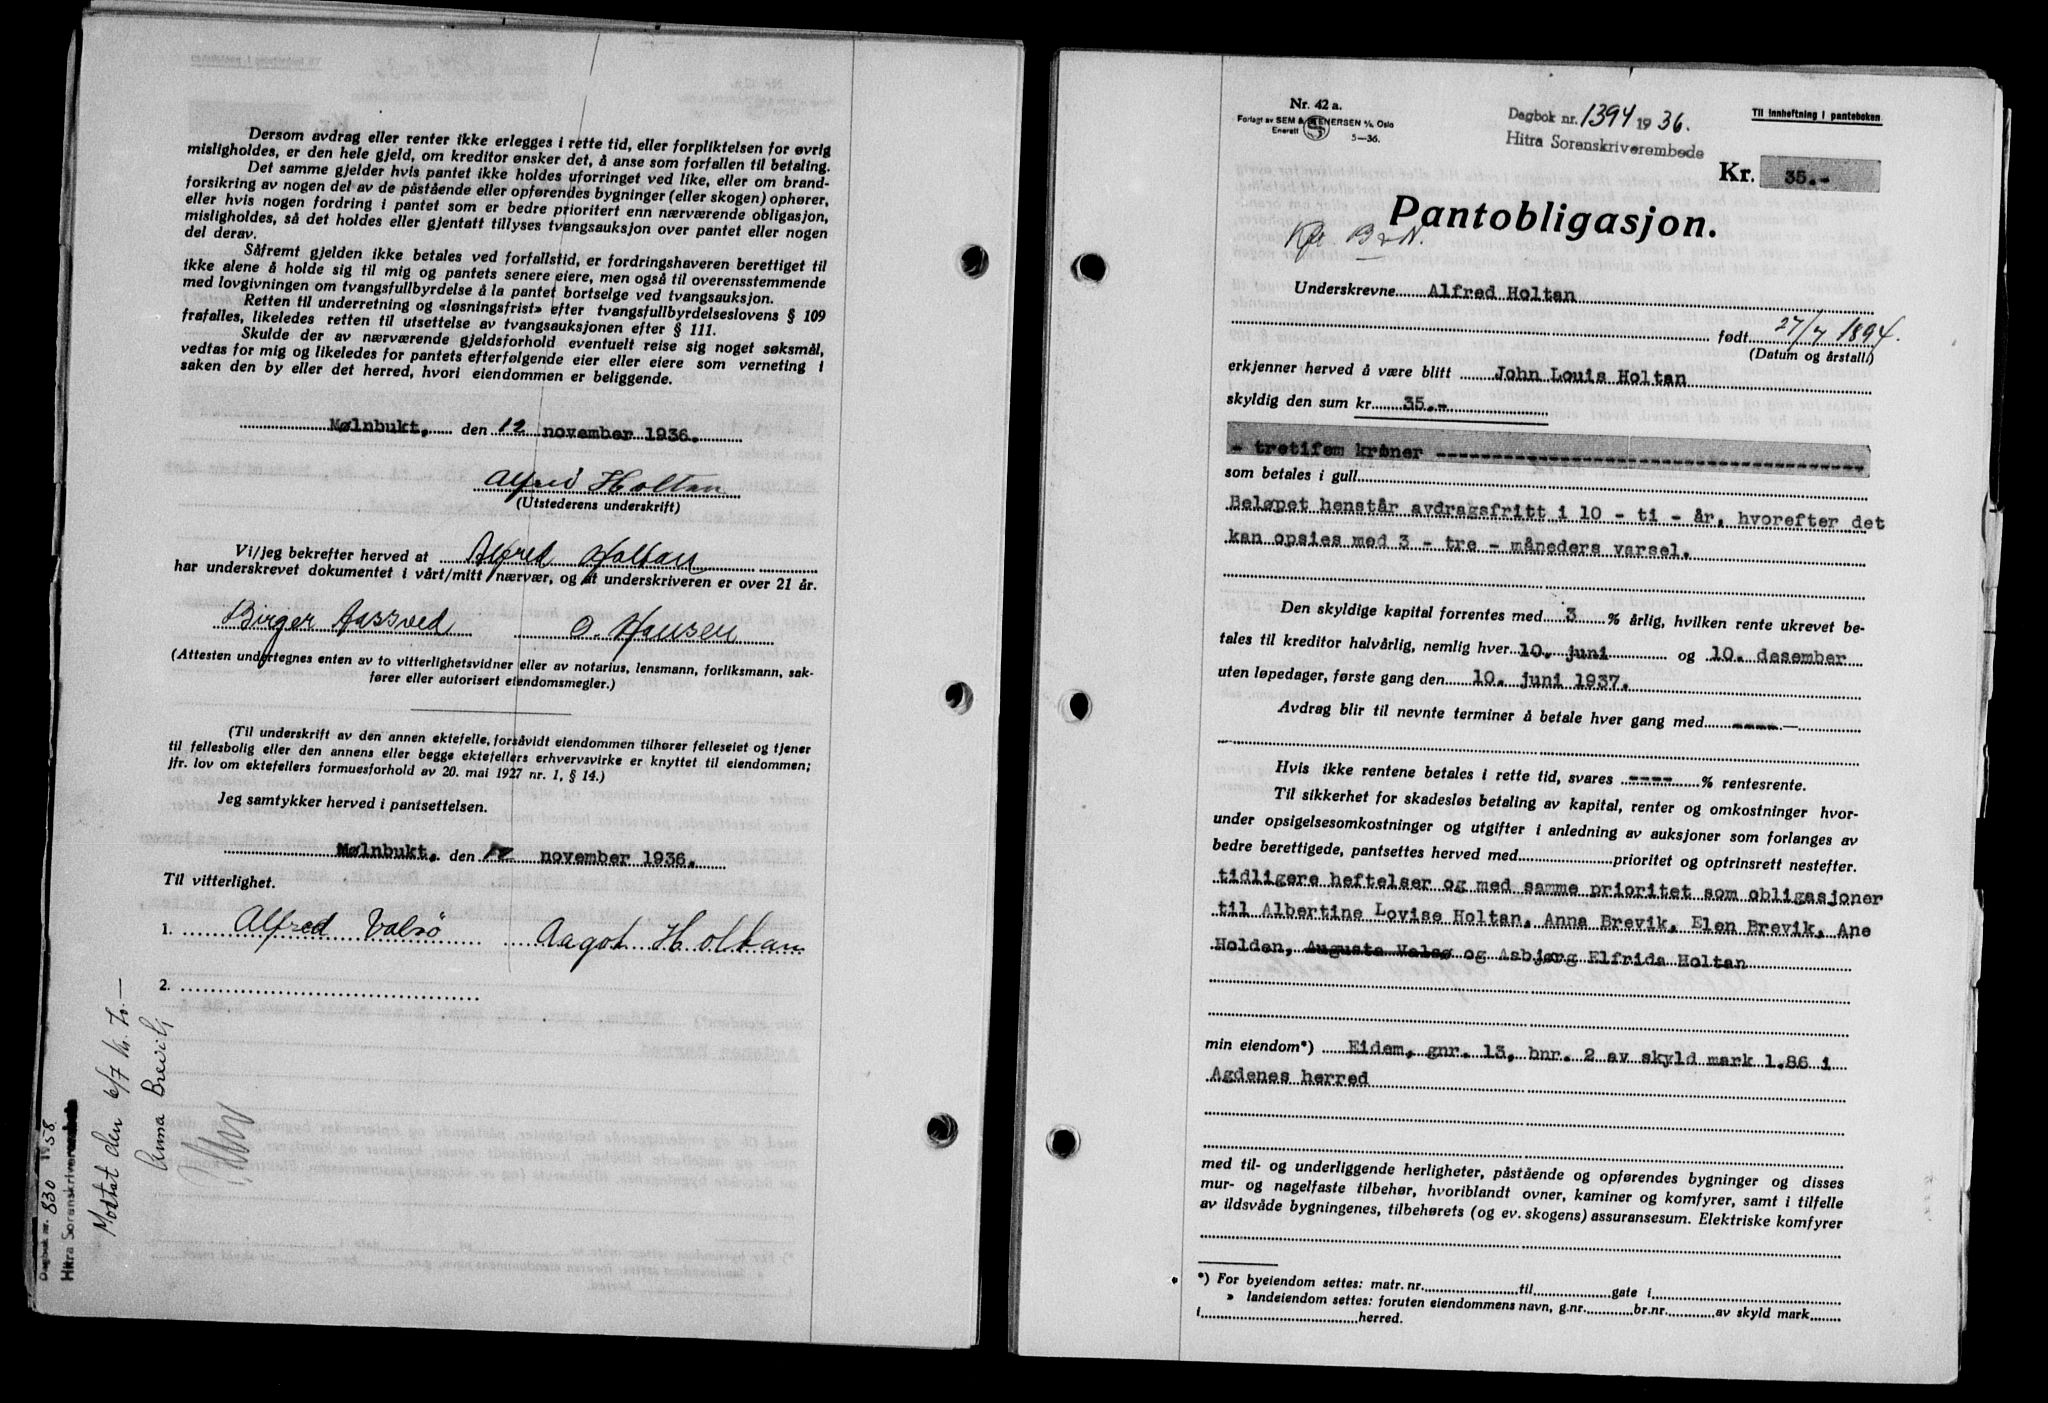 Dersom avdrag eller renter ikke erlegges i rette tid, eller forpliktelsen for øvrig
misligholdes, er den hele gjeld, om kreditor ønsker det, å anse som forfallen til betaling.
Det samme gjelder hvis pantet ikke holdes uforringet ved like, eller om brand-
forsikring av nogen del av de påstående eller opførendes bygninger (eller skogen) ophører,
eller hvis nogen fordring i pantet som er bedre prioritert enn nærværende obligasjon,
misligholdes, så det holdes eller gjentatt tillyses tvangsauksjon over pantet eller nogen
del derav.
Såfremt gjelden ikke betales ved forfallstid, er fordringshaveren berettiget til
ikke alene å holde sig til mig og pantets senere eiere, men også til overensstemmende
med lovgivningen om tvangsfullbyrdelse å la pantet bortselge ved tvangsauksjon.
Retten til underretning og «løsningsfrist» efter tvangsfullbyrdelseslovens § 109
frafalles, likeledes retten til utsettelse av tvangsauksjonen efter § 111.
Skulde der av nærværende gjeldsforhold eventuelt reise sig noget søksmål,
vedtas for mig og likeledes for pantets efterfølgende eier eller eiere som verneting i
saken den by eller det herred, hvori eiendommen er beliggende.
Mølnbukt, den 12 november 1936.
Alfred Holtan
(Utstederens underskrift)
Vi/jeg bekrefter herved at Alfred Holtan
har underskrevet dokumentet i vårt/mitt nærvær, og at underskriveren er over 21 år.
Birger Aassved O. Hansen
(Attesten undertegnes enten av to vitterlighetsvidner eller av notarius, lensmann, forliksmann, sak-
fører eller autorisert eiendomsmegler.)
(Til underskrift av den annen ektefelle, forsåvidt eiendommen tilhører felleseiet og tjener
til fellesbolig eller den annens eller begge ektefellers erhvervsvirke er knyttet til eiendommen;
jfr. lov om ektefellers formuesforhold av 20. mai 1927 nr. 1, § 14.)
Jeg samtykker herved i pantsettelsen.
Mølnbukt, den 12 november 1936.
Til vitterlighet.
1. Alfred Valsö Aagot Holtan
2.
Dagbok nr. 830 1958
Hitra Sorenskriverembede
Mottat den 6/7 kr. 70.—
Anna Brevik
Nr. 42 a.
Forlagt av SEM & STENERSEN A/S, Oslo
Enerett 5—36.
Dagbok nr. 1394 1936.
Hitra Sorenskriverembede
Til innheftning i panteboken
Kr. 35.-
Pantobligasjon.
Underskrevne Alfred Holtan
født 27/7 1894.
(Datum og årstall)
erkjenner herved å være blitt John Louis Holtan
skyldig den sum kr. 35.-
- trettifem kroner ----
som betales i gull
Beløpet henstår avdragsfritt i 10 - ti - år, hvorefter det
kan opsies med 3 - tre - måneders varsel.
Den skyldige kapital forrentes med 3 % årlig, hvilken rente ukrevet be-
tales til kreditor halvårlig, nemlig hver 10. juni og 10. desember
uten løpedager, første gang den 10. juni 1937.
Avdrag blir til nevnte terminer å betale hver gang med ----
Hvis ikke rentene betales i rette tid, svares ---- % rentesrente.
Til sikkerhet for skadesløs betaling av kapital, renter og omkostninger hvor-
under opsigelsesomkostninger og utgifter i anledning av auksjoner som forlanges av
bedre berettigede, pantsettes herved med prioritet og optrinsrett nestefter.
tidligere heftelser og med samme prioritet som obligasjoner
til Albertine Lovise Holtan, Anna Brevik, Elen Brevik, Ane
Holden, Augusta Valsø og Asbjørg Elfrida Holtan
min eiendom*) Eidem, gnr. 13, bnr. 2 av skyld mark 1.86 i
Agdenes herred
med til- og underliggende herligheter, påstående og opførendes bygninger og disses
mur- og nagelfaste tilbehør, hvoriblandt ovner, kaminer og komfyrer, samt i tilfelle
av ildsvåde bygningenes, tilbehørets (og ev. skogens) assuransesum. Elektriske komfyrer
*) For byeiendom settes: matr. nr. til gate i
» landeiendom settes: foruten eiendommens navn, g.nr. br.nr. av skyld mark
i herred.